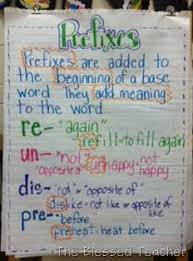 Prefixes
Prefixes are added to
the beginning of a base
word They add meaning
to the word
re- "again"
refill=to fill again
un- "not"
unhappy=not happy
dis- "not" or "opposite of"
dislike=not like or opposite of like
pre- -before
preheat=heat before
The Blessed Teacher